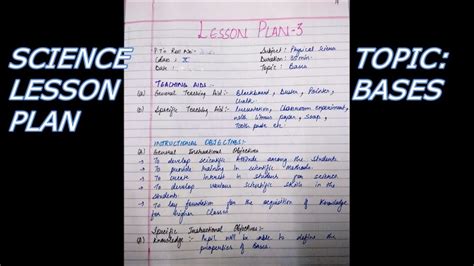 SCIENCE
LESSON
PLAN
TOPIC:
BASES
LESSON PLAN-3
P.T's Roll No:-
Class :- X
Date :-
Subject : Physical Science
Duration : 35 min
Topic : Bases
TEACHING AIDS :-
(a) General Teaching Aid :- Blackboard, Duster, Pointer,
Chalk.
(b) Specific Teaching Aid :- Classroom experiment,
with litmus paper, Soap,
Tooth paste etc.
INTRUCTIONAL OBJECTIVES:-
(A) General Instructional Objectives
→ To develop scientific Attitude among the Students
→ To provide training in scientific methods.
→ To create interest in students for science
→ To develop various Scientific skills in the
students.
→ To lay foundation for the acquisition of Knowledge
for Higher Classes
Specific Instructional Objectives:-
Knowledge :- Pupil will be able to define the
properties of Bases.